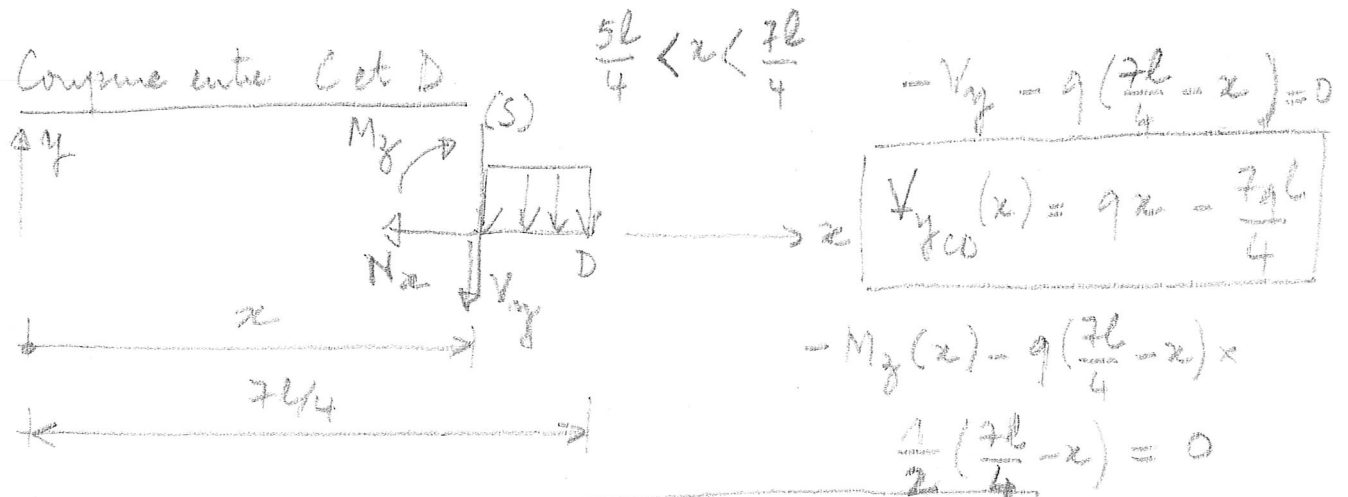 Coupure entre C et D
5l/4 < x < 7l/4
y
Mz
(S)
Nx
Vy
D
x
x
7l/4
- Vy - q(7l/4 - x) = 0
VyCD(x) = qx - 7ql/4
- Mz(x) - q(7l/4 - x) ×
1/2 (7l/4 - x) = 0